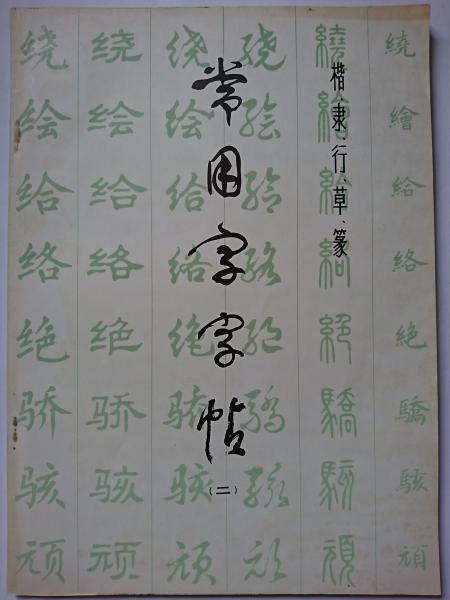 楷、隶、行、草、篆
常用字字帖
(二)
绕 绕 绕 绕 繞 繞
绘 绘 绘 绘 繪 繪
给 给 给 给 給 給
络 络 络 络 絡 絡
绝 绝 绝 绝 絕 絕
骄 骄 骄 骄 驕 驕
骇 骇 骇 骇 駭 駭
顽 顽 顽 顽 頑 頑